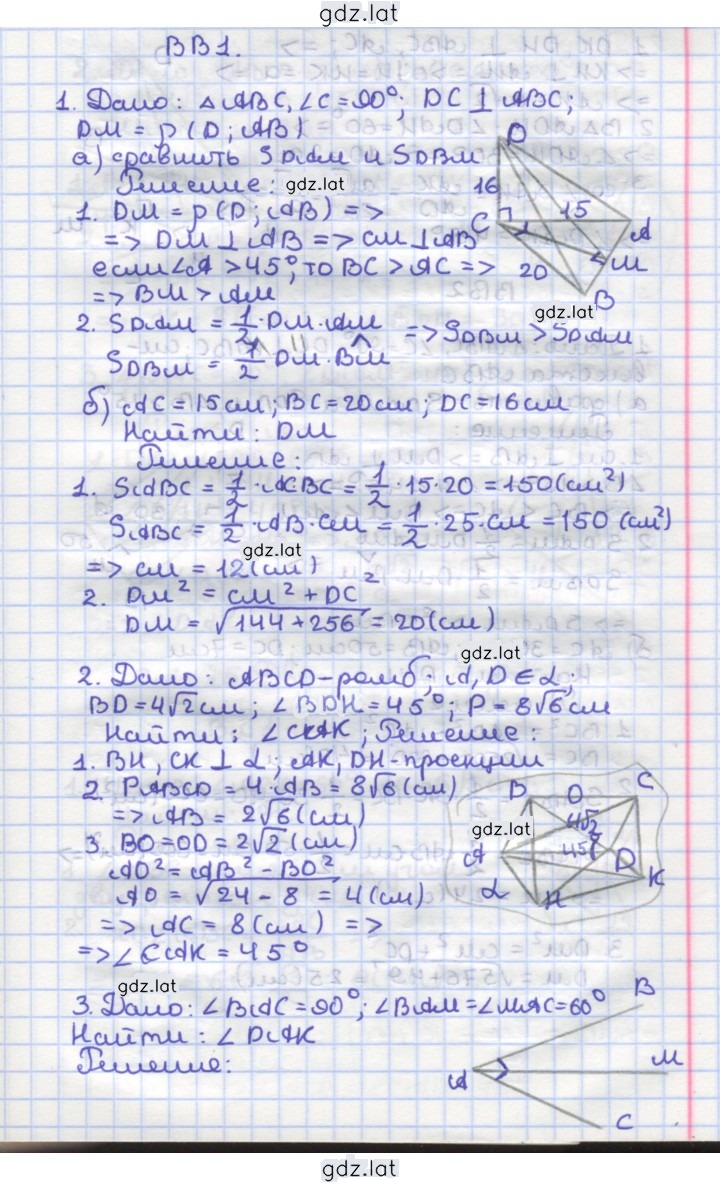 gdz.lat
ВВ1.
1. Дано: △ABC, ∠C = 90°; DC ⊥ ABC;
DM = ρ(D; AB).
а) сравнить SDAM и SDBM
Решение: gdz.lat
1. DM = ρ(D; AB) =>
=> DM ⊥ AB => CM ⊥ AB
если ∠A > 45°, то BC > AC =>
=> BM > AM
D
16
15
C
A
M
20
B
gdz.lat
2. SDAM = 1/2 · DM · AM => SDBM > SDAM
SDBM = 1/2 DM · BM
б) AC = 15 см; BC = 20 см; DC = 16 см
Найти: DM
Решение:
1. SABC = 1/2 · ACBC = 1/2 · 15 · 20 = 150 (см²)
SABC = 1/2 · AB · CM = 1/2 · 25 · CM = 150 (см²)
gdz.lat
=> CM = 12 (см)
2. DM² = CM² + DC²
DM = √144 + 256 = 20 (см)
gdz.lat
2. Дано: ABCD – ромб; A, D ∈ α;
BD = 4√2 см; ∠BDH = 45°; P = 8√6 см
Найти: ∠CAK; Решение:
1. BH, CK ⊥ α; AK, DH – проекции
2. PABCD = 4 · AB = 8√6 (см)
=> AB = 2√6 (см)
3. BO = OD = 2√2 (см)
AO² = AB² – BO²
AO = √24 – 8 = 4 (см)
=> AC = 8 (см) =>
=> ∠CAK = 45°
B O C
4√2
gdz.lat
A 45° D
K
α H
gdz.lat
3. Дано: ∠BAC = 90°; ∠BAM = ∠MAC = 60°
Найти: ∠DAK
Решение:
B
A
M
C
gdz.lat